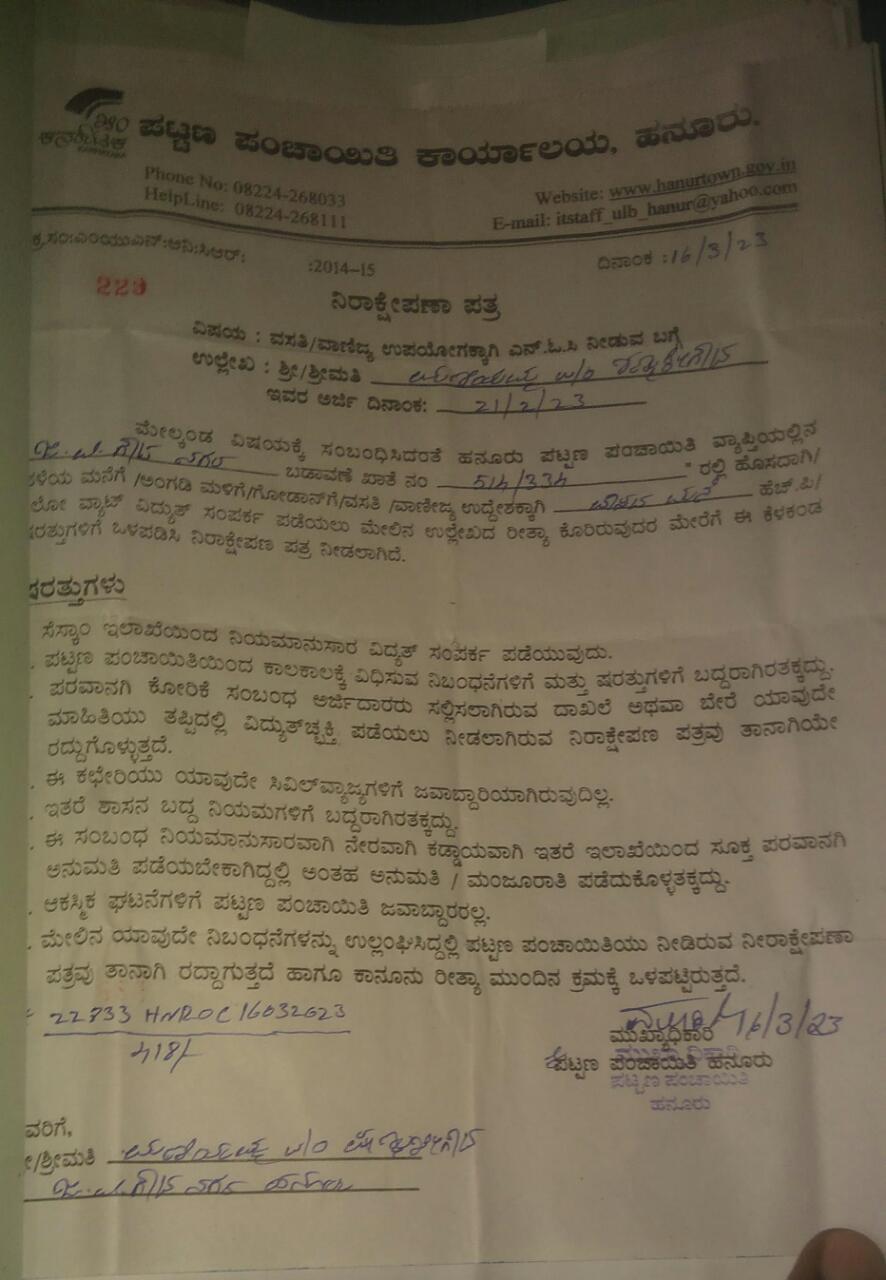 ಕರ್ನಾಟಕ
ಪಟ್ಟಣ ಪಂಚಾಯಿತಿ ಕಾರ್ಯಾಲಯ, ಹನೂರು.
Phone No: 08224-268033
HelpLine: 08224-268111
Website: www.hanurtown.gov.in
E-mail: itstaff_ulb_hanur@yahoo.com
ಕ್ರ.ಸಂ:ಎಂಯುಎನ್:ಆನಿ:ಸಿಆರ್: :2014-15
ದಿನಾಂಕ :16/3/23
229
ನಿರಾಕ್ಷೇಪಣಾ ಪತ್ರ
ವಿಷಯ : ವಸತಿ/ವಾಣಿಜ್ಯ ಉಪಯೋಗಕ್ಕಾಗಿ ಎನ್.ಓ.ಸಿ ನೀಡುವ ಬಗ್ಗೆ
ಉಲ್ಲೇಖ : ಶ್ರೀ/ಶ್ರೀಮತಿ
ಇವರ ಅರ್ಜಿ ದಿನಾಂಕ: 21/2/23
ಮೇಲ್ಕಂಡ ವಿಷಯಕ್ಕೆ ಸಂಬಂಧಿಸಿದಂತೆ ಹನೂರು ಪಟ್ಟಣ ಪಂಚಾಯಿತಿ ವ್ಯಾಪ್ತಿಯಲ್ಲಿನ
ಬಡಾವಣೆ ಖಾತೆ ನಂ 514/334 " ರಲ್ಲಿ ಹೊಸದಾಗಿ/
ಳೆಯ ಮನೆಗೆ /ಅಂಗಡಿ ಮಳಿಗೆ/ಗೋಡಾನ್‌ಗೆ/ವಸತಿ /ವಾಣೀಜ್ಯ ಉದ್ದೇಶಕ್ಕಾಗಿ ಹೆಚ್.ಪಿ/
ಲೋ ವ್ಯಾಟ್ ವಿದ್ಯುತ್ ಸಂಪರ್ಕ ಪಡೆಯಲು ಮೇಲಿನ ಉಲ್ಲೇಖಿದ ರೀತ್ಯಾ ಕೊರಿರುವುದರ ಮೇರೆಗೆ ಈ ಕೆಳಕಂಡ
ಷರತ್ತುಗಳಿಗೆ ಒಳಪಡಿಸಿ ನಿರಾಕ್ಷೇಪಣ ಪತ್ರ ನೀಡಲಾಗಿದೆ.
ಷರತ್ತುಗಳು
ಸೆಸ್ಕಾಂ ಇಲಾಖೆಯಿಂದ ನಿಯಮಾನುಸಾರ ವಿದ್ಯತ್ ಸಂಪರ್ಕ ಪಡೆಯುವುದು.
. ಪಟ್ಟಣ ಪಂಚಾಯಿತಿಯಿಂದ ಕಾಲಕಾಲಕ್ಕೆ ವಿಧಿಸುವ ನಿಬಂಧನೆಗಳಿಗೆ ಮತ್ತು ಷರತ್ತುಗಳಿಗೆ ಬದ್ದರಾಗಿರತಕ್ಕದ್ದು.
. ಪರವಾನಗಿ ಕೋರಿಕೆ ಸಂಬಂಧ ಅರ್ಜಿದಾರರು ಸಲ್ಲಿಸಲಾಗಿರುವ ದಾಖಲೆ ಅಥವಾ ಬೇರೆ ಯಾವುದೇ
ಮಾಹಿತಿಯು ತಪ್ಪಿದಲ್ಲಿ ವಿದ್ಯುತ್‌ಚ್ಛಕ್ತಿ ಪಡೆಯಲು ನೀಡಲಾಗಿರುವ ನಿರಾಕ್ಷೇಪಣ ಪತ್ರವು ತಾನಾಗಿಯೇ
ರದ್ದುಗೊಳ್ಳುತ್ತದೆ.
. ಈ ಕಛೇರಿಯು ಯಾವುದೇ ಸಿವಿಲ್‌ವ್ಯಾಜ್ಯಗಳಿಗೆ ಜವಾಬ್ದಾರಿಯಾಗಿರುವುದಿಲ್ಲ.
. ಇತರೆ ಶಾಸನ ಬದ್ದ ನಿಯಮಗಳಿಗೆ ಬದ್ದರಾಗಿರತಕ್ಕದ್ದು.
. ಈ ಸಂಬಂಧ ನಿಯಮಾನುಸಾರವಾಗಿ ನೇರವಾಗಿ ಕಡ್ಡಾಯವಾಗಿ ಇತರೆ ಇಲಾಖೆಯಿಂದ ಸೂಕ್ತ ಪರವಾನಗಿ
ಅನುಮತಿ ಪಡೆಯಬೇಕಾಗಿದ್ದಲ್ಲಿ ಅಂತಹ ಅನುಮತಿ / ಮಂಜೂರಾತಿ ಪಡೆದುಕೊಳ್ಳತಕ್ಕದ್ದು.
. ಆಕಸ್ಮಿಕ ಘಟನೆಗಳಿಗೆ ಪಟ್ಟಣ ಪಂಚಾಯಿತಿ ಜವಾಬ್ದಾರರಲ್ಲ.
. ಮೇಲಿನ ಯಾವುದೇ ನಿಬಂಧನೆಗಳನ್ನು ಉಲ್ಲಂಘಿಸಿದ್ದಲ್ಲಿ ಪಟ್ಟಣ ಪಂಚಾಯಿತಿಯು ನೀಡಿರುವ ನೀರಾಕ್ಷೇಪಣಾ
ಪತ್ರವು ತಾನಾಗಿ ರದ್ದಾಗುತ್ತದೆ ಹಾಗೂ ಕಾನೂನು ರೀತ್ಯಾ ಮುಂದಿನ ಕ್ರಮಕ್ಕೆ ಒಳಪಟ್ಟಿರುತ್ತದೆ.
22733 HNROC16032023
418/-
16/3/23
ಮುಖ್ಯಾಧಿಕಾರಿ
ಪಟ್ಟಣ ಪಂಚಾಯಿತಿ ಹನೂರು
ಪಟ್ಟಣ ಪಂಚಾಯಿತಿ
ಹನೂರು
ವರಿಗೆ,
ೀ/ಶ್ರೀಮತಿ